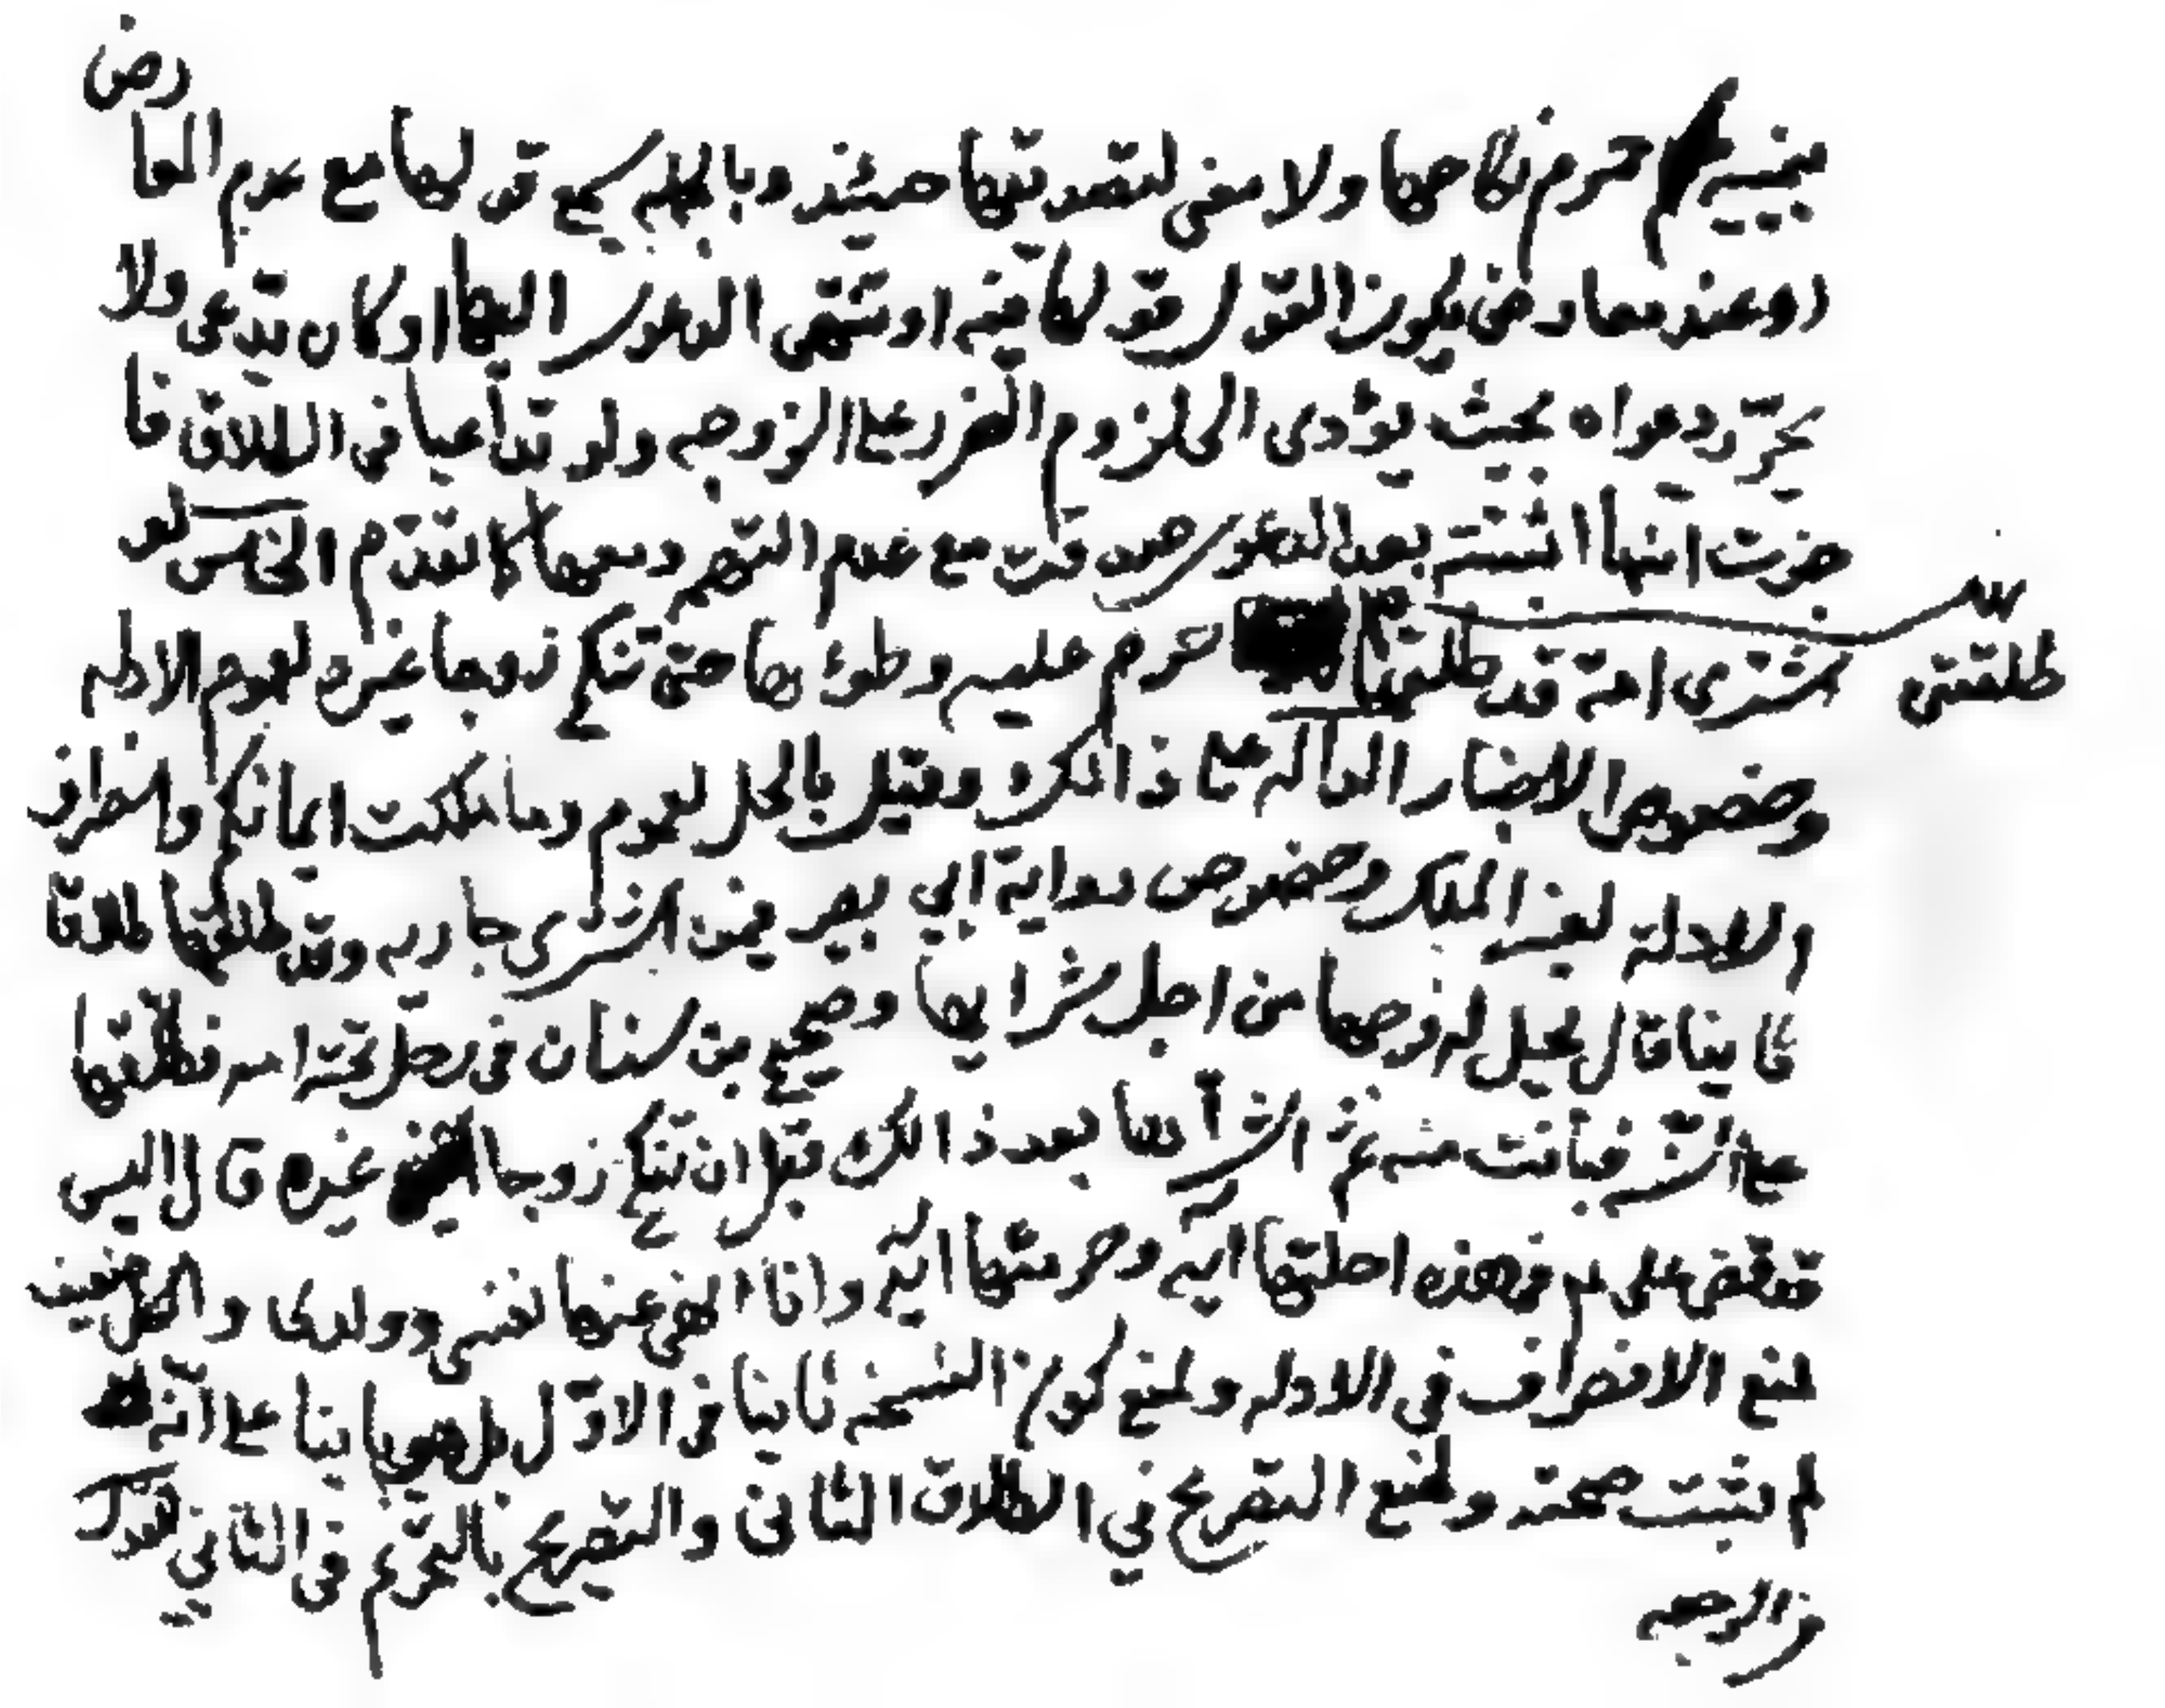 رض
حرم نكاحها ولا معنى لتصديقها حينئذ وبالجملة يسمع قولها مع عدم المعا
وعند معارض يكون القول قولها فيه او تنتهى الدعوى اليها او كان يدعى ولا
يحرّر دعواه بحيث يؤدى الى لزوم الضرر على الزوجه ولو تداعيا في الطلاق فا
انها بعد الدعوى صدقت مع عدم التهمه ومعها كما تقدّم الخامس لو
اشترى امة قد طلقها حرم عليه وطوئها حتى تنكح زوجا غيره لعموم الادله
طلقتين
وخصوص الاخبار الدالّه على ذالك وقيل بالحل لعموم وما ملكت ايمانكم وانصراف
الادلة لغير الملك وخصوص رواية ابي بصير فيمن اشترى جاريه وقد طلقها طلاقا
ثانيا قال يحيل له فرجها من اجل شرايها وصحيح بن سنان في رجل تحته امه فطلّقها
على السنّه فبانت منه ثم اشتراها بعد ذالك قبل ان تنكح زوجا غيره قال اليس
قد قضى علي ع فهذه احلتها ايه وحرمتها ايه وانا انهى عنها نفسي وولدى والكل ضعيف
لمنع الانصراف في الادله ولمنع كون النسخه ثانيا في الاوّل بل هي باينا على انّه
لم يثبت صحته ولمنع التصريح في الطلاق الثاني والتصريح بالتحريم في الثاني
والرجه